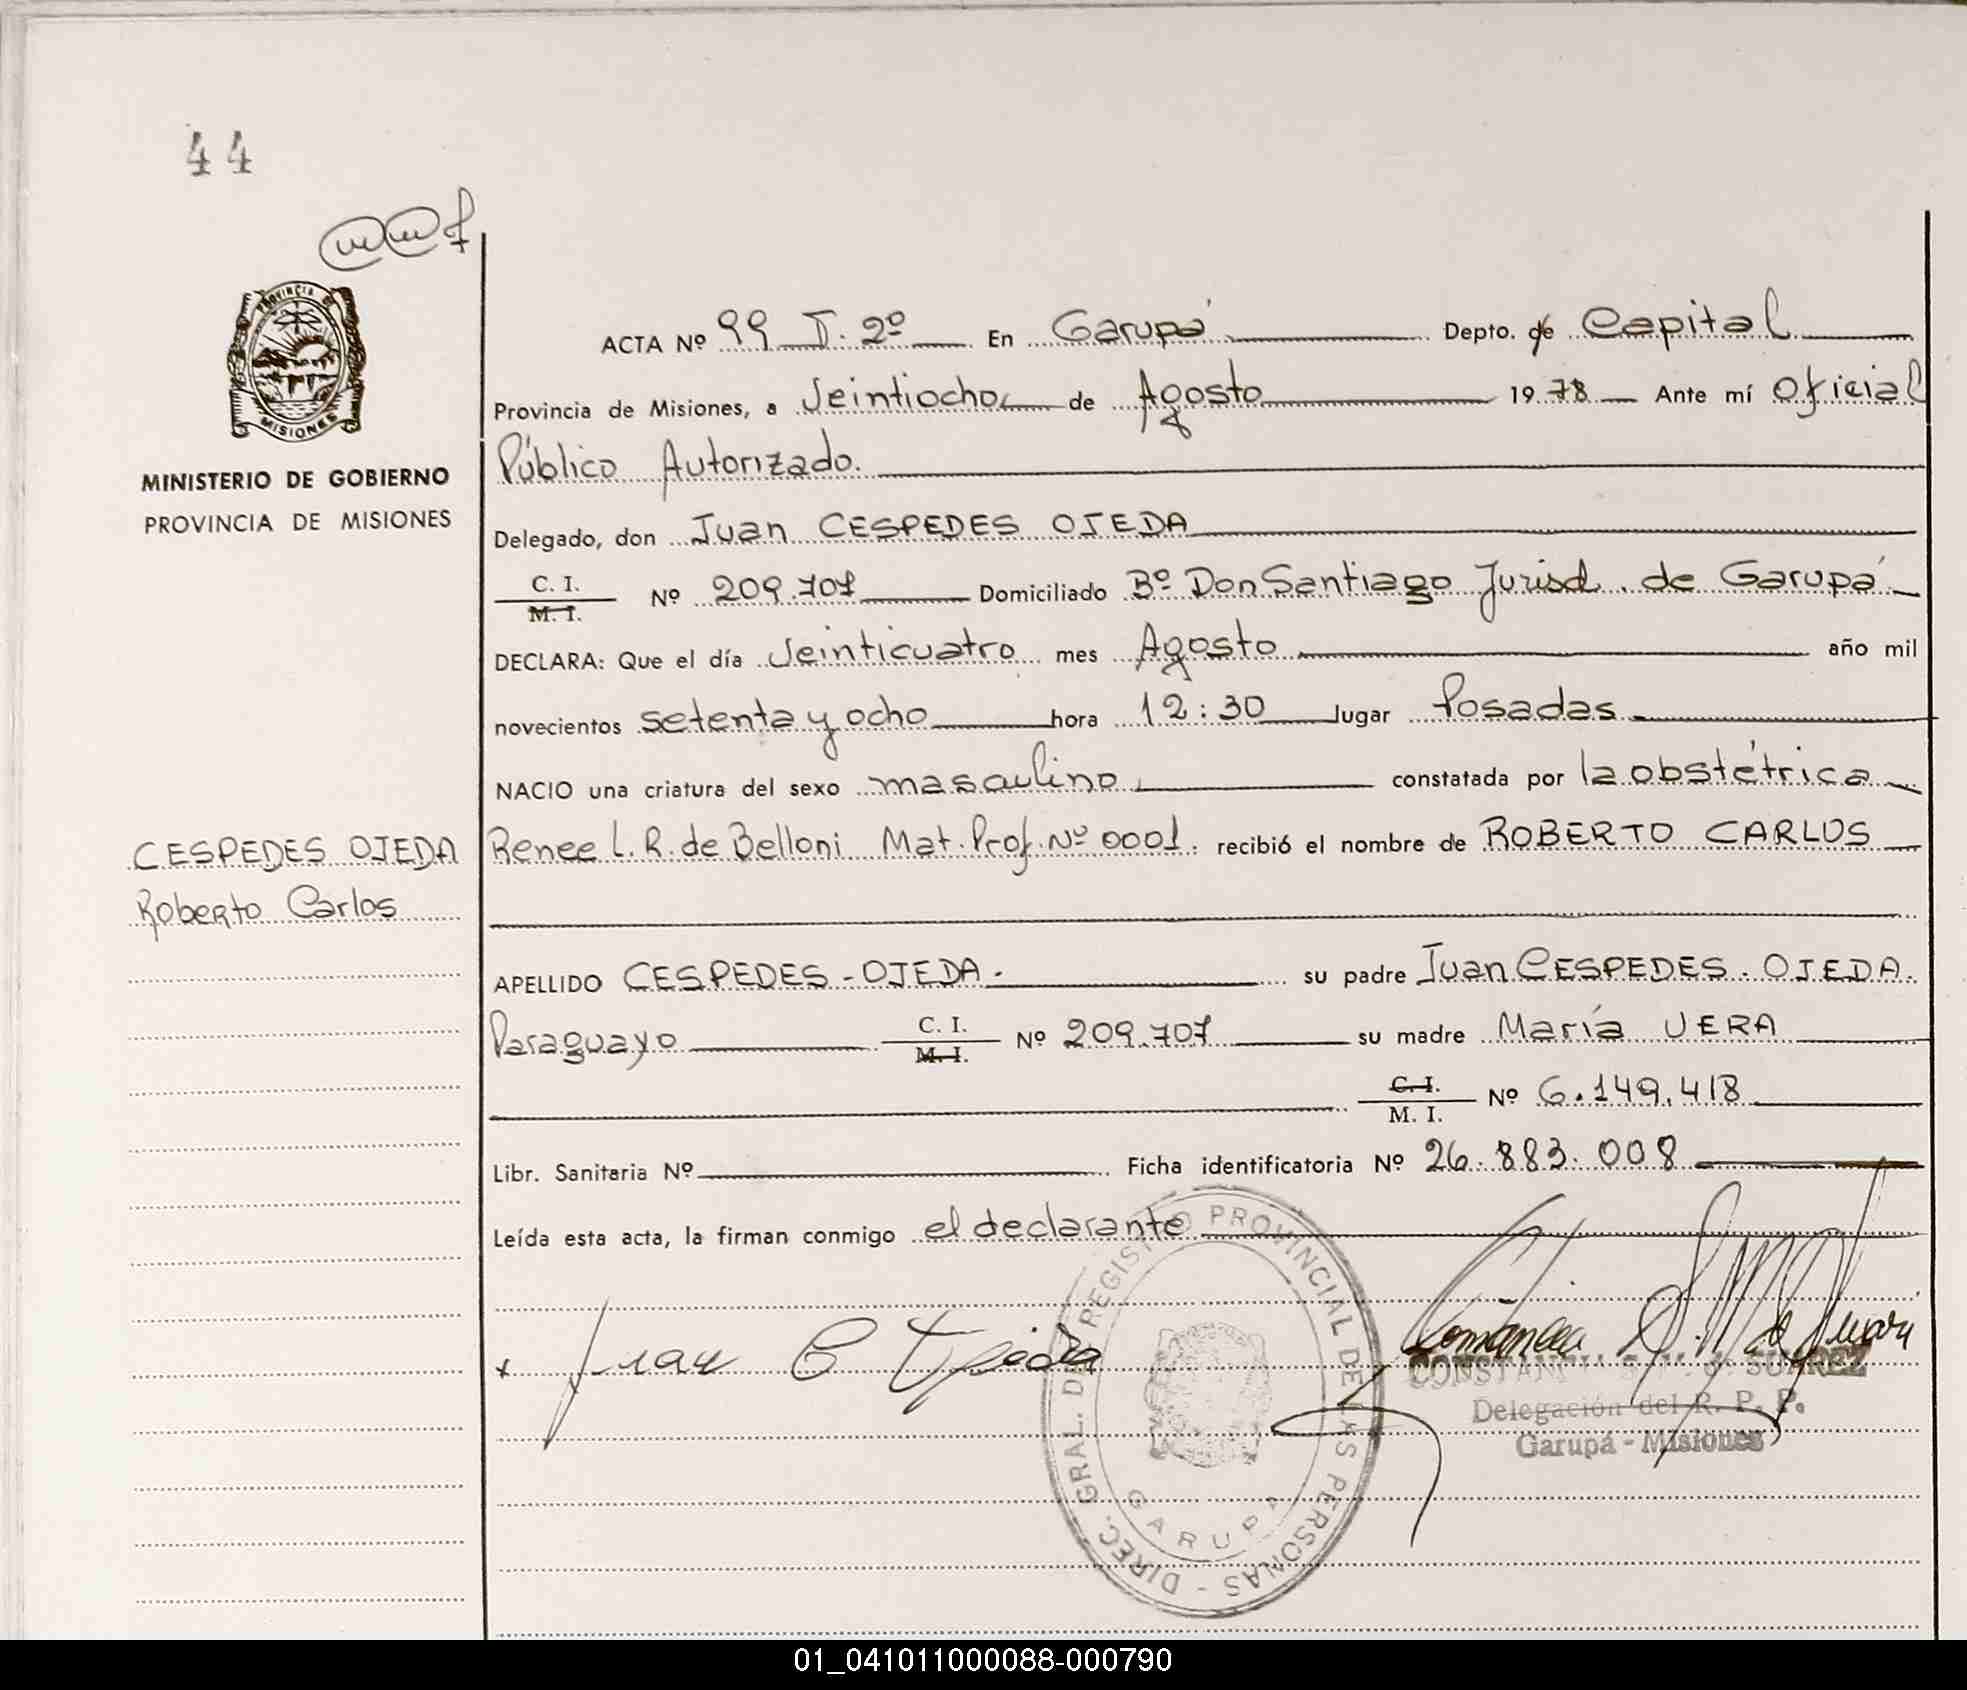 44
PROVINCIA DE
MISIONES
MINISTERIO DE GOBIERNO
PROVINCIA DE MISIONES
ACTA Nº 99 T. 2º En Garupá Depto. de Capital
Provincia de Misiones, a Veintiocho de Agosto 1978 Ante mí Oficial
Público Autorizado.
Delegado, don Juan CESPEDES OJEDA
C. I.
M. I.
Nº 209.707 Domiciliado Bº Don Santiago Jurisd. de Garupá
DECLARA: Que el día Veinticuatro mes Agosto año mil
novecientos setenta y ocho hora 12:30 lugar Posadas
NACIO una criatura del sexo masculino constatada por la obstétrica
Renee L. R. de Belloni Mat. Prof. Nº 0001. recibió el nombre de ROBERTO CARLOS
CESPEDES OJEDA
Roberto Carlos
APELLIDO CESPEDES - OJEDA. su padre Juan CESPEDES. OJEDA.
Paraguayo C. I. Nº 209.707 su madre María VERA
M. I.
C. I.
M. I.
Nº 6.149.418
Libr. Sanitaria Nº Ficha identificatoria Nº 26.883.008
Leída esta acta, la firman conmigo el declarante
Juan C Ojeda
DIREC. GRAL. DEL REGISTRO PROVINCIAL DE LAS PERSONAS -
GARUPA
CONSTANCIA SUAREZ
Delegación del R. P. P.
Garupá - Misiones
01_041011000088-000790